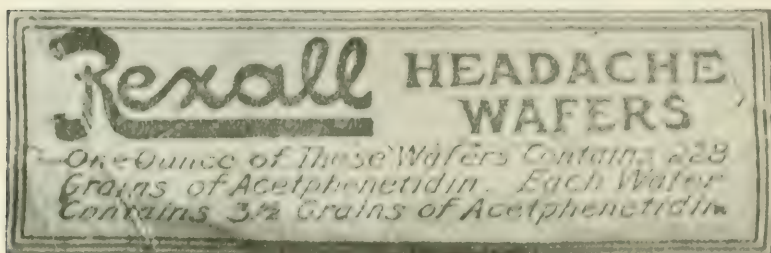 Rexall HEADACHE
WAFERS
One Ounce of These Wafers Contains 228
Grains of Acetphenetidin. Each Wafer
Contains 3½ Grains of Acetphenetidin